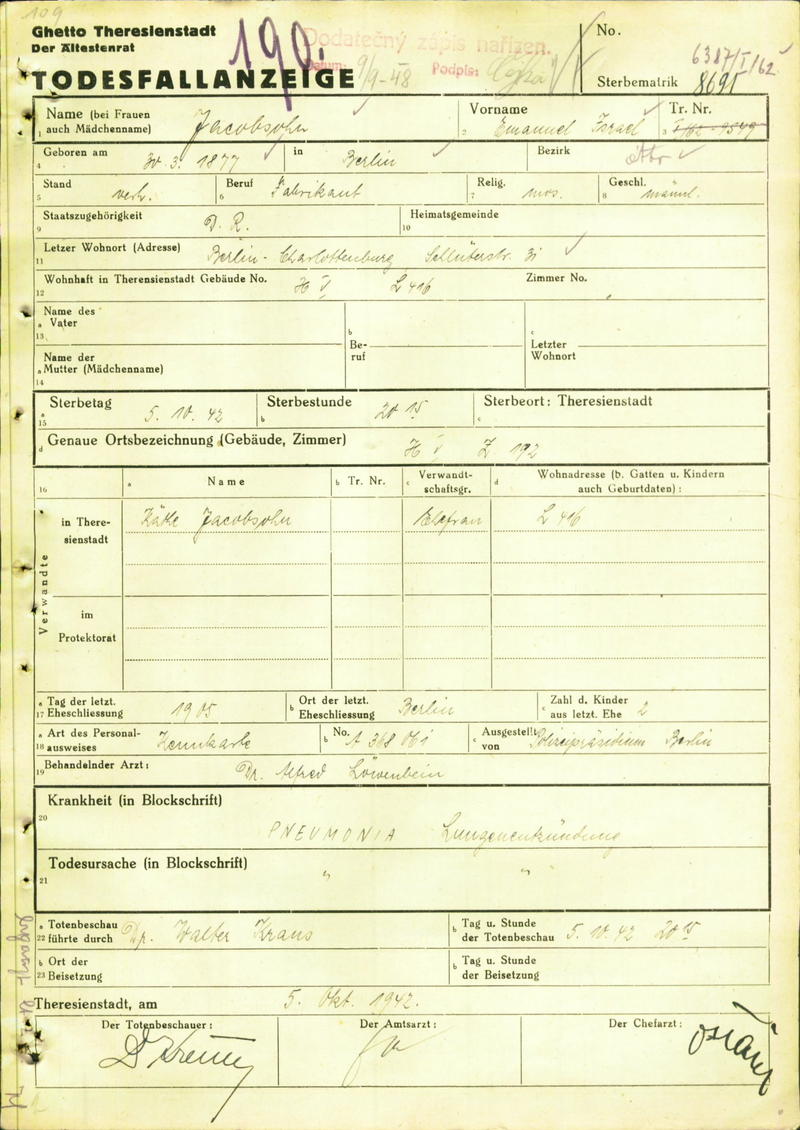 109
Ghetto Theresienstadt
Der Ältestenrat
190.
Dodatečný zápis nařízen.
Datum: 9/9-48 Podpis:
No.
6387/I/162
TODESFALLANZEIGE
Sterbematrik 8691
Name (bei Frauen auch Mädchenname) Jacobsohn
1
Vorname Emanuel Israel
2
Tr. Nr.
3
Geboren am 30. 3. 1877 in Berlin Bezirk
4
Stand verh. Beruf Fabrikant Relig. mos. Geschl. männl.
5 6 7 8
Staatszugehörigkeit D. R. Heimatsgemeinde
9 10
Letzer Wohnort (Adresse) Berlin-Charlottenburg Schlüterstr. 31
11
Wohnhaft in Theresienstadt Gebäude No. H V L 416 Zimmer No.
12
Name des
a Vater
13
b Beruf
c Letzter Wohnort
Name der
a Mutter (Mädchenname)
14
a Sterbetag 5. 10. 42 b Sterbestunde 20 15 c Sterbeort: Theresienstadt
15
d Genaue Ortsbezeichnung (Gebäude, Zimmer) H V Z 192
16 a Name b Tr. Nr. c Verwandtschaftsgr. d Wohnadresse (b. Gatten u. Kindern auch Geburtdaten):
Verwandte
in Theresienstadt Käthe Jacobsohn Ehefrau L 416
im Protektorat
a Tag der letzt. Eheschliessung 1905 b Ort der letzt. Eheschliessung Berlin c Zahl d. Kinder aus letzt. Ehe 2
17
a Art des Personalausweises Kennkarte b No. A 368 061 c Ausgestellt von Polizeipräsidium Berlin
18
Behandelnder Arzt: Dr. Alfred Löwenbein
19
Krankheit (in Blockschrift)
20
PNEUMONIA Lungenentzündung
Todesursache (in Blockschrift)
21
" "
a Totenbeschau führte durch Dr. Walter Kraus b Tag u. Stunde der Totenbeschau 5. 10. 42 20 15
22
b Ort der Beisetzung b Tag u. Stunde der Beisetzung
23
Theresienstadt, am 5. Okt. 1942.
Der Totenbeschauer: Der Amtsarzt: Der Chefarzt: